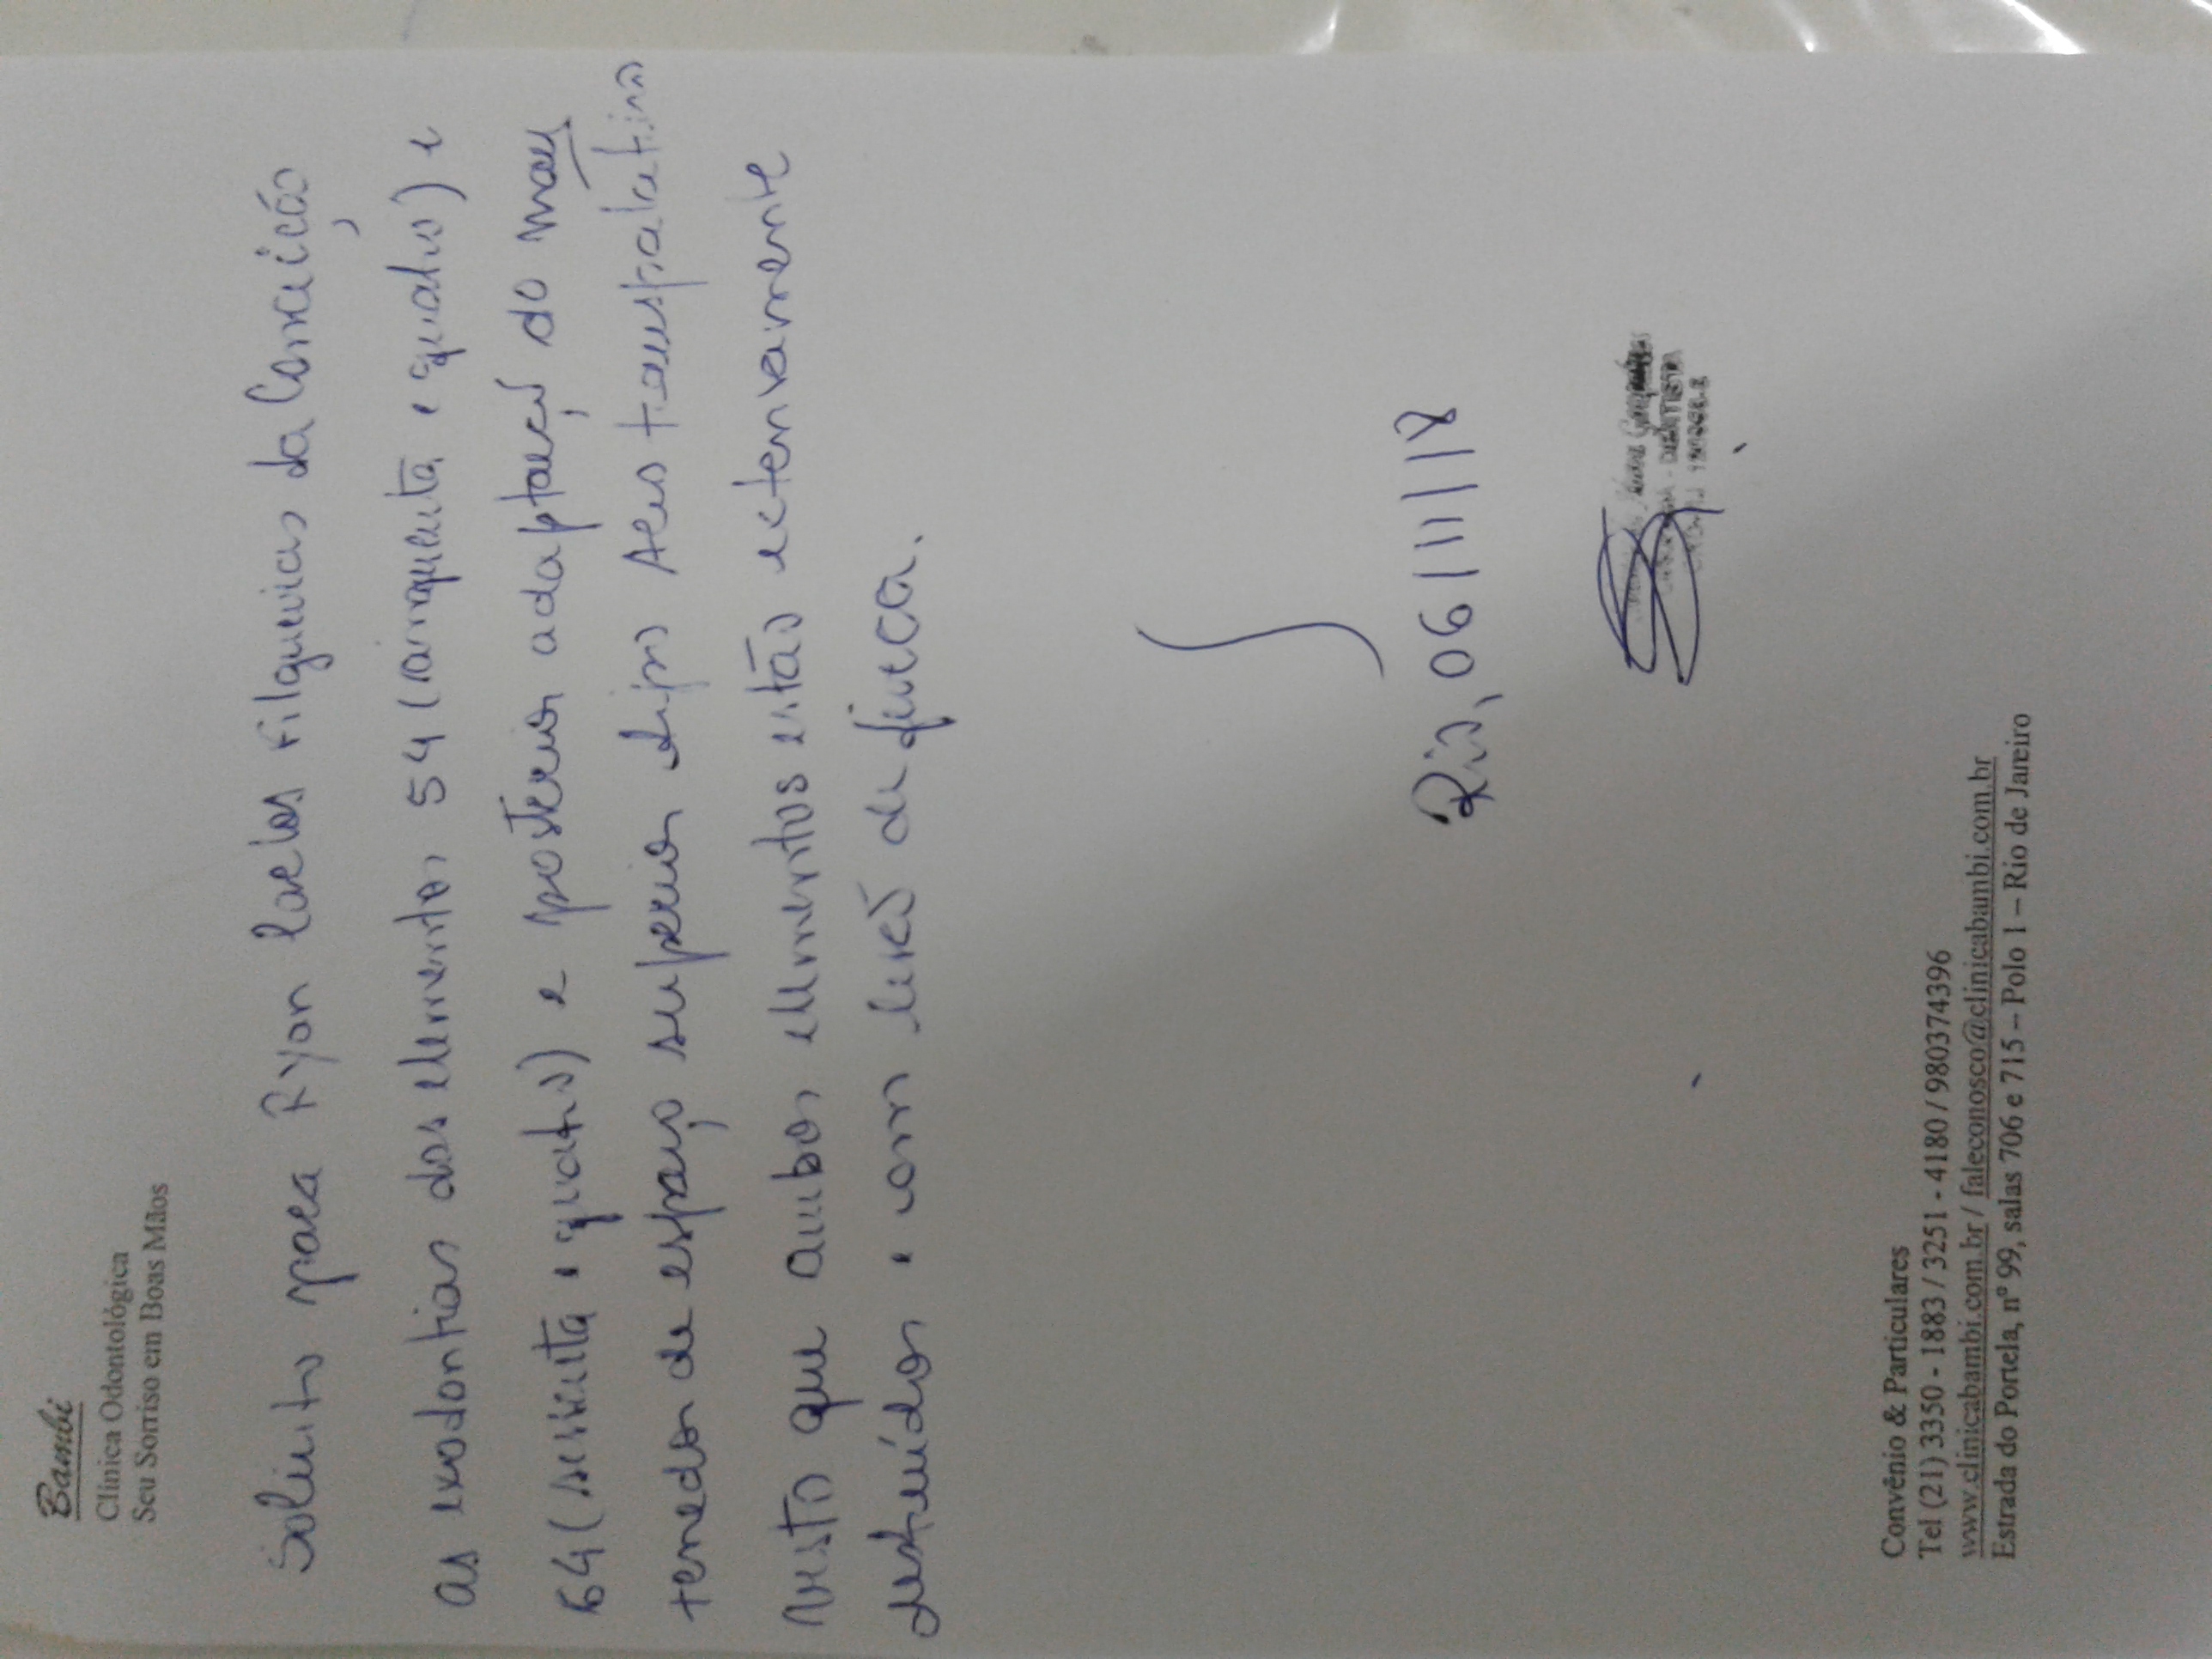 Bambi
Clínica Odontológica
Seu Sorriso em Boas Mãos
Solicito para Ryan Carlos Filgueiras da Conceição
as exodontias dos elementos 54 (cinquenta e quatro) e
64 (sessenta e quatro) e posterior adaptação do man
tenedor de espaço superior tipo arco transpalatino
visto que ambos elementos estão extensamente
destruídos e com lesão de furca.
Rio, 06/11/18
Convênio & Particulares
Tel (21) 3350 - 1883 / 3251 - 4180 / 980374396
www.clinicabambi.com.br / faleconosco@clinicabambi.com.br
Estrada do Portela, nº 99, salas 706 e 715 – Polo 1 – Rio de Janeiro